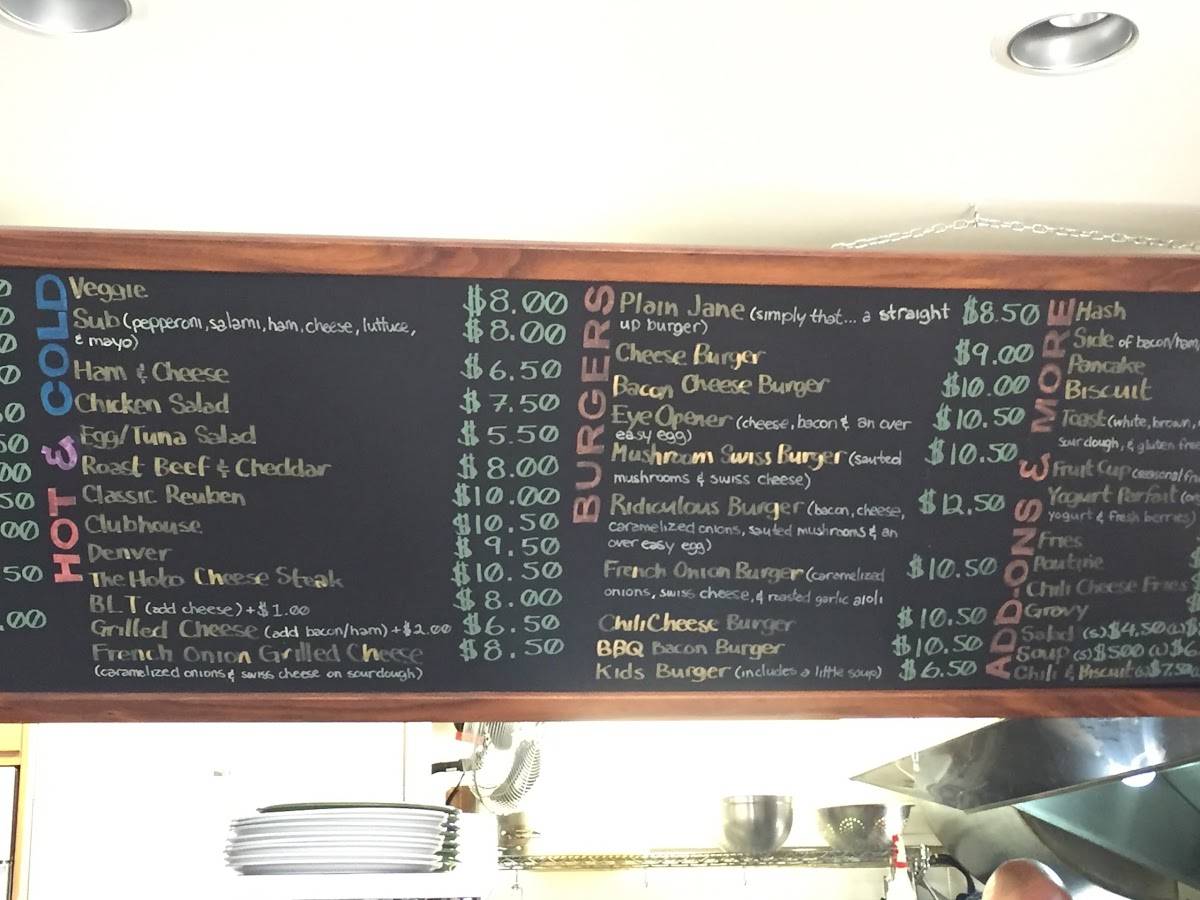 HOT & COLD
Veggie $8.00
Sub (pepperoni, salami, ham, cheese, luttuce, $8.00
& mayo)
Ham & Cheese $6.50
Chicken Salad $7.50
Egg/Tuna Salad $5.50
Roast Beef & Cheddar $8.00
Classic Reuben $10.00
Clubhouse $10.50
Denver $9.50
The Hoko Cheese Steak $10.50
BLT (add cheese) +$1.00 $8.00
Grilled Cheese (add bacon/ham) +$2.00 $6.50
French Onion Grilled Cheese $8.50
(caramelized onions & swiss cheese on sourdough)
BURGERS
Plain Jane (simply that... a straight $8.50
up burger)
Cheese Burger $9.00
Bacon Cheese Burger $10.00
Eye Opener (cheese, bacon & an over $10.50
easy egg)
Mushroom Swiss Burger (sauted $10.50
mushrooms & swiss cheese)
Ridiculous Burger (bacon, cheese, $12.50
caramelized onions, sauted mushrooms & an
over easy egg)
French Onion Burger (caramelized $10.50
onions, swiss cheese, & roasted garlic aioli
Chili Cheese Burger $10.50
BBQ Bacon Burger $10.50
Kids Burger (includes a little soup) $6.50
ADD-ONS & MORE
Hash
Side of bacon/ham
Pancake
Biscuit
Toast (white, brown,
sourdough, & gluten
Fruit Cup (seasonal
Yogurt Parfait
yogurt & fresh berries)
Fries
Poutine
Chili Cheese Fries
Gravy
Salad (s)$4.50
Soup (s)$5.00 (L)$6
Chili & Biscuit $7.50